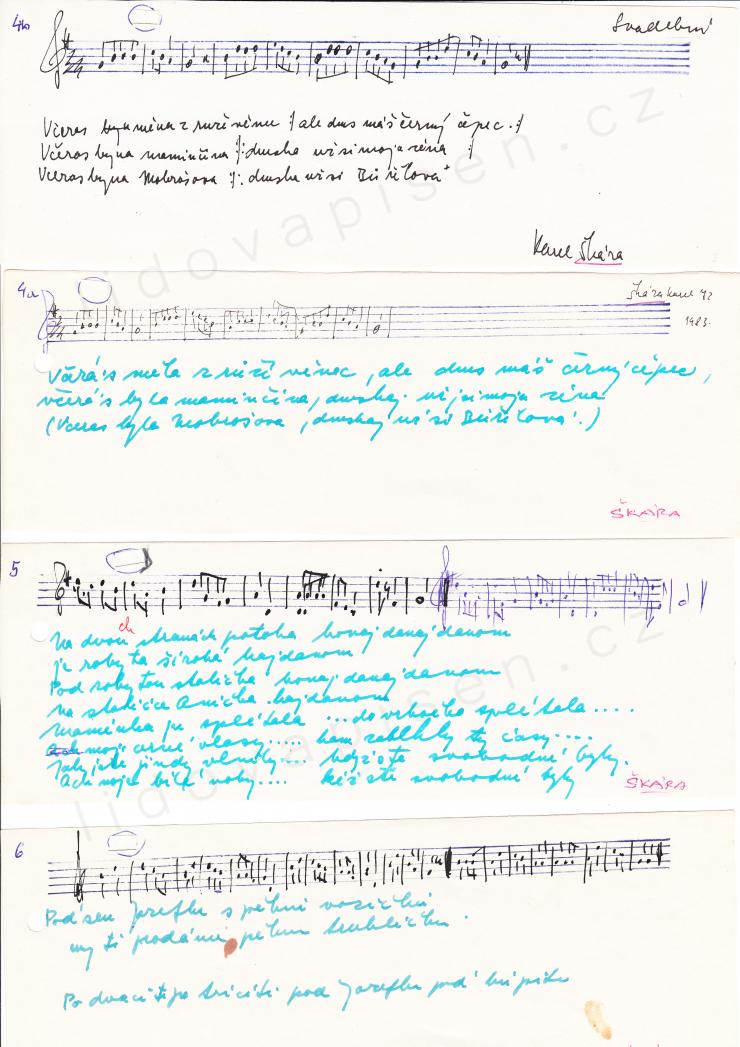 4b
Svadební
Včeras měna z ruží věnec :/ ale dnes máš černý čepec :/
Včeras byua maminčina :/: dneska už si moja žena :/
Včeras byua Mokrošova :/: dneska už si Buřičova
Karel Škára
4a
Škára Karel 42
1983.
Včerás měla z růží věnec, ale dnes máš černý čepec,
včerá's byla maminčina, dneskaj už jsi moja žena
(Včeras byla Mokrošova, dneskaj už si Buřičova.)
ŠKÁRA
5
ch
Na dvou stranách potoka honaj danaj danom
je roby ta široká hajdanom
Pod roby tou stolička honaj danaj danom
na stoličce Anička hajdanom
Maměnka ju splétala ... do vrkoča splétala ....
moje černé vlasy .... kam zablkly té časy ....
jindy .... když ste svobodné byly.
Ach moje bílé nohy .... když ste svobodné byly
ŠKÁRA
6
Pod' sem Jozefku s pěknú vozíčkú
my ti prodáme pěknú truhličku.
Po dvaciti po triciti pod Jozefku
lidovapisen.cz
lidovapisen.cz